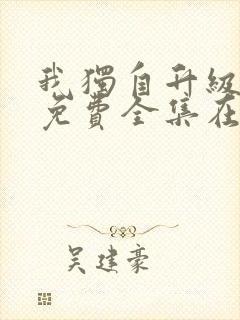 我獨自升級
免費全集在
吴建豪